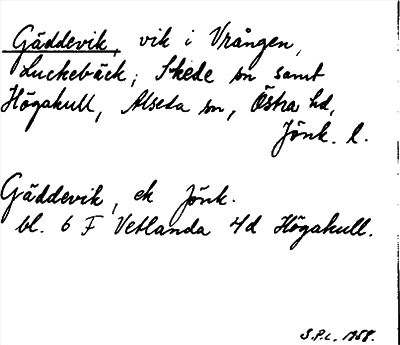 Gäddevik, vik i Vrången,
Luckebäck, Skede sn samt
Högakull, Alseda sn, Östra hd,
Jönk. l.
Gäddevik, ek Jönk.
bl. 6 F Vetlanda 4d Högakull.
S.P.L. 1958.